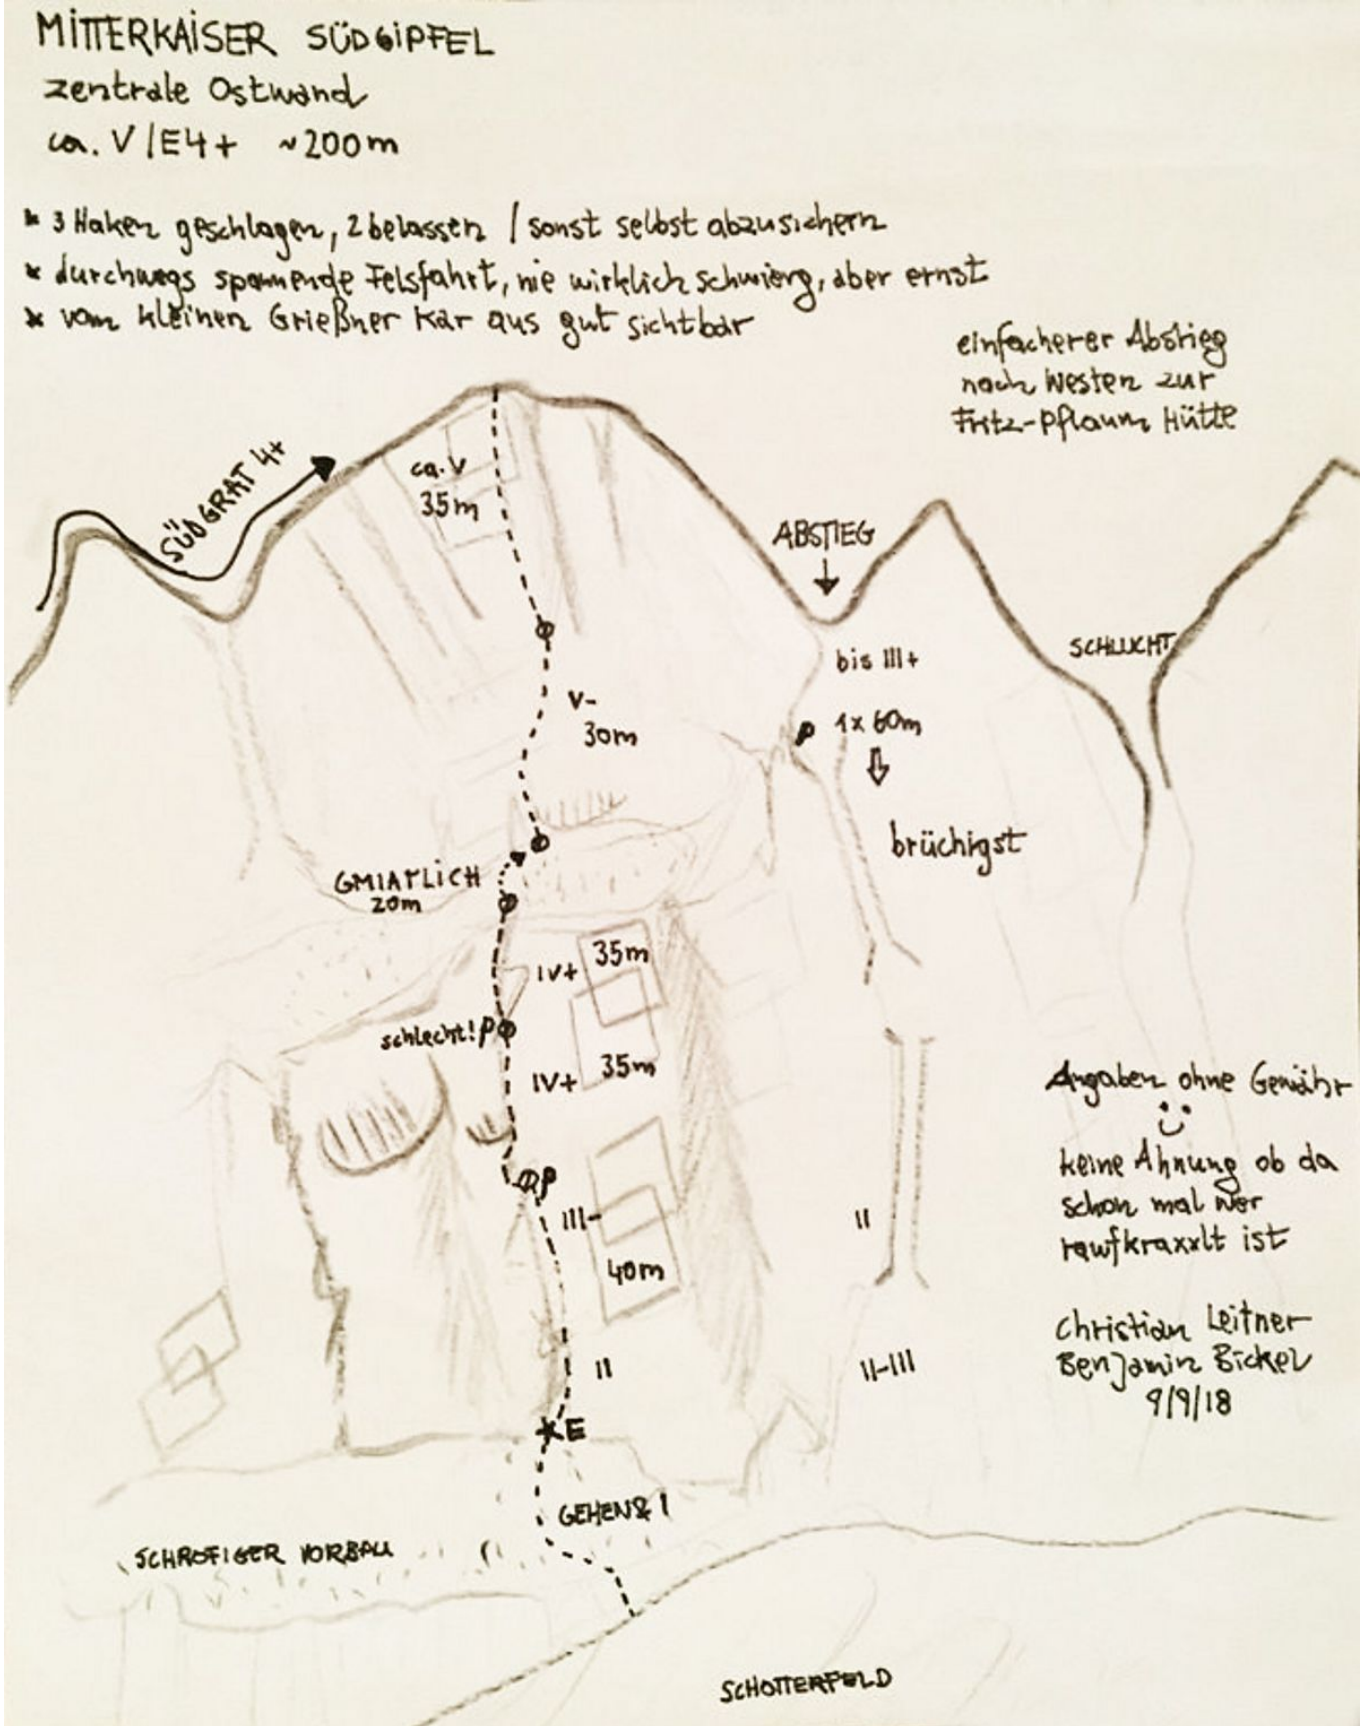 MITTERKAISER SÜDGIPFEL
zentrale Ostwand
ca. V/E4+ ~200m
* 3 Haken geschlagen, 2 belassen / sonst selbst abzusichern
* durchwegs spannende Felsfahrt, nie wirklich schwierg, aber ernst
* vom kleinen Grießner Kar aus gut sichtbar
einfacherer Abstieg
nach Westen zur
Fritz-Pflaum Hütte
SÜDGRAT 4+
ca. V
35m
ABSTIEG
SCHLUCHT
bis III+
V-
30m
1x 60m
brüchigst
GMIATLICH
20m
IV+
35m
schlecht!
IV+
35m
III-
40m
II
II
II-III
E
GEHEN & I
SCHROFIGER VORBAU
SCHOTTERFELD
Angaben ohne Gewähr
keine Ahnung ob da
schon mal wer
raufkraxxlt ist
Christian Leitner
Benjamin Bickel
9/9/18